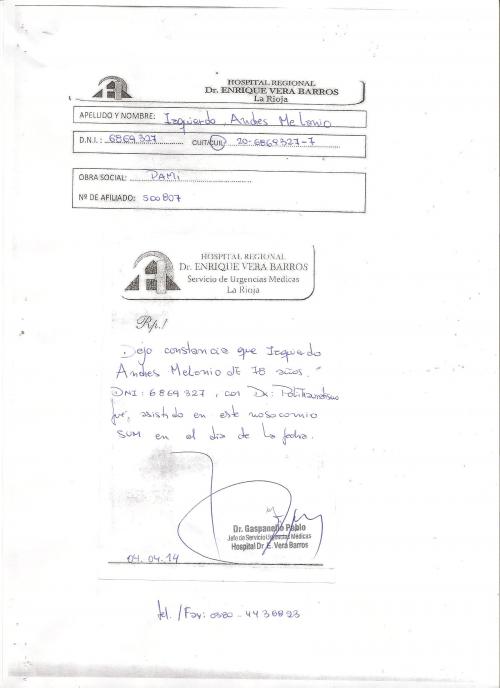 HOSPITAL REGIONAL
Dr. ENRIQUE VERA BARROS
La Rioja
APELLIDO Y NOMBRE: Izquierdo Andres Melonio
D.N.I.: 6869327 CUIT/CUIL 20-6869327-7
OBRA SOCIAL: PAMi
Nº DE AFILIADO: 500807
HOSPITAL REGIONAL
Dr. ENRIQUE VERA BARROS
Servicio de Urgencias Médicas
La Rioja
Rp./
Dejo constancia que Izquierdo
Andres Melonio de 78 años.
DNI: 6869327, con Dx: Politraumatismo
fue, asistido en este nosocomio
SUM en el dia de la fecha.
Dr. Gaspanello Pablo
Jefe de Servicio Urgencias Médicas
Hospital Dr. E. Vera Barros
04.04.14
tel./Fax: 0380-4438823